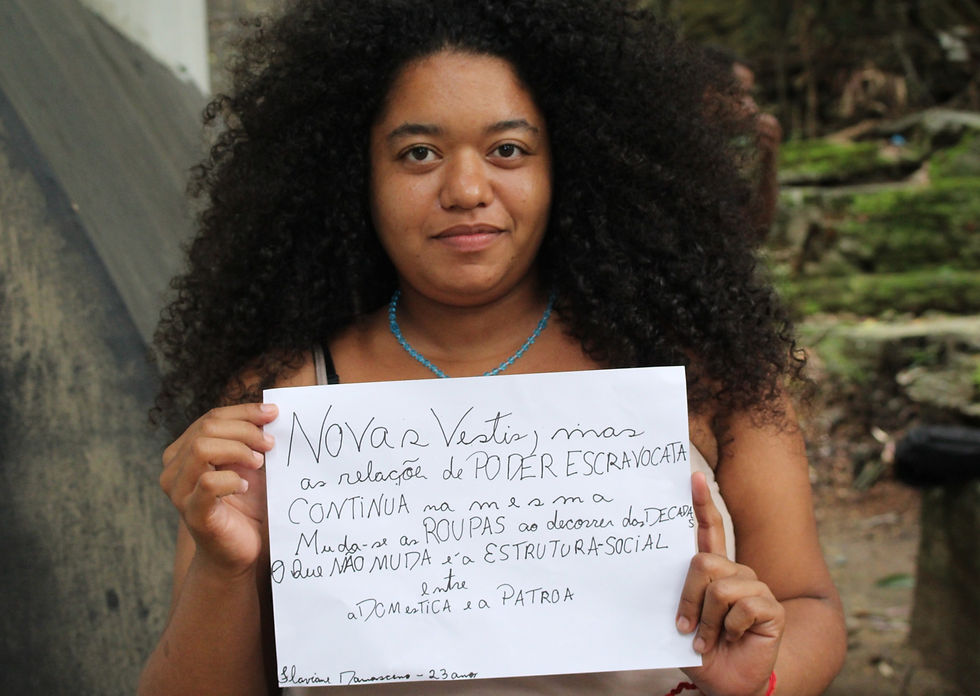 NOVAS Vestis, mas
as relaçõe de PODER ESCRAVOCATA
CONTINUA na mesma
Muda-se as ROUPAS ao decorrer das DECADAS
O Que NÃO MUDA é a ESTRUTURA-SOCIAL
entre
a DOMesTICA e a PATROA
Slaviane Damasceno - 23 anos